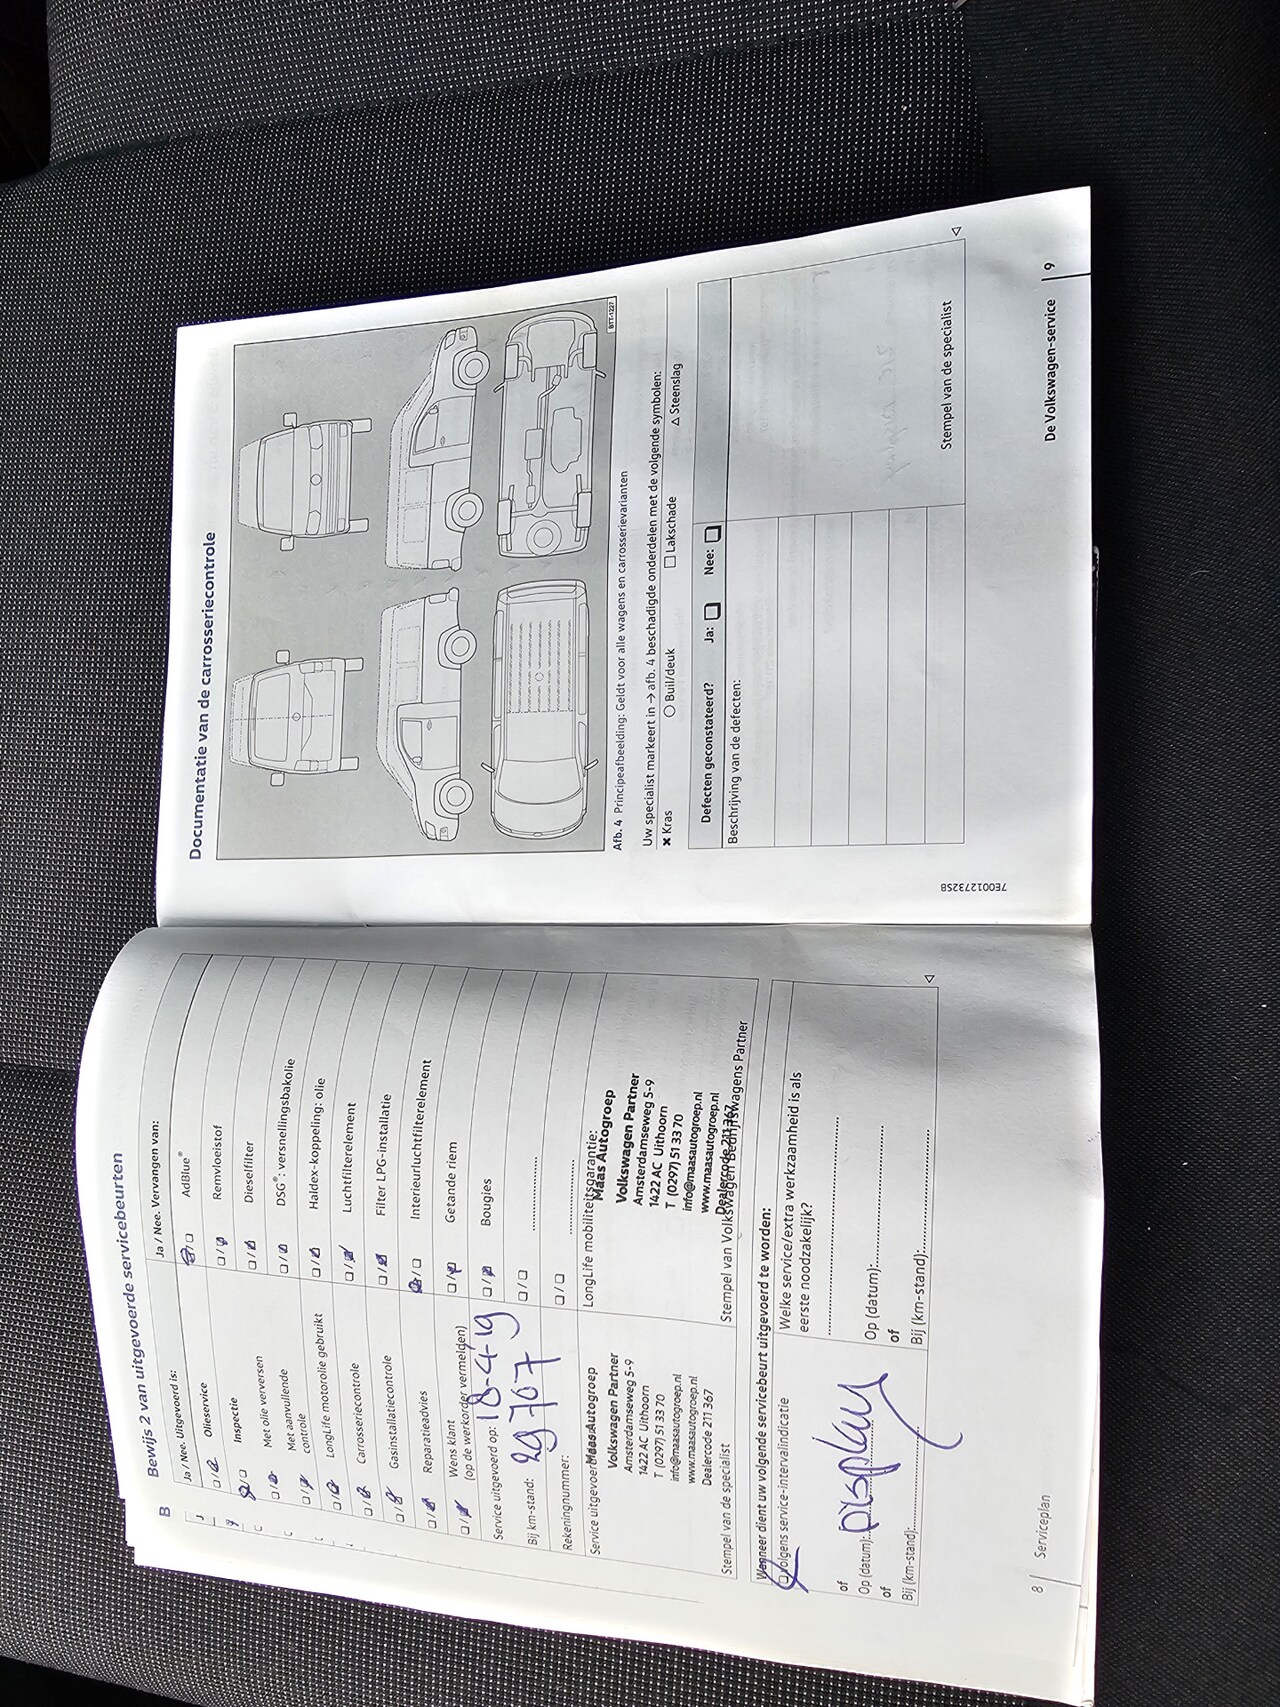 B Bewijs 2 van uitgevoerde servicebeurten
Ja / Nee. Uitgevoerd is:
Olieservice
Inspectie
Met olie verversen
Met aanvullende
controle
LongLife motorolie gebruikt
Carrosseriecontrole
Gasinstallatiecontrole
Reparatieadvies
Wens klant
(op de werkorder vermelden)
Service uitgevoerd op: 18-4-'19
Bij km-stand: 29707
Rekeningnummer:
Ja / Nee. Vervangen van:
AdBlue®
Remvloeistof
Dieselfilter
DSG®: versnellingsbakolie
Haldex-koppeling: olie
Luchtfilterelement
Filter LPG-installatie
Interieurluchtfilterelement
Getande riem
Bougies
Service uitgevoerd
Maas Autogroep
Volkswagen Partner
Amsterdamseweg 5-9
1422 AC Uithoorn
T (0297) 51 33 70
info@maasautogroep.nl
www.maasautogroep.nl
Dealercode 211 367
Stempel van de specialist
LongLife mobiliteitsgarantie:
Maas Autogroep
Volkswagen Partner
Amsterdamseweg 5-9
1422 AC Uithoorn
T (0297) 51 33 70
info@maasautogroep.nl
www.maasautogroep.nl
Dealercode 211 367
Stempel van Volkswagen Bedrijfswagens Partner
Wanneer dient uw volgende servicebeurt uitgevoerd te worden:
Volgens service-intervalindicatie
of
Op (datum): Display
of
Bij (km-stand):
Welke service/extra werkzaamheid is als
eerste noodzakelijk?
Op (datum):
of
Bij (km-stand):
8 Serviceplan
Documentatie van de carrosseriecontrole
BTT-1227
Afb. 4 Principeafbeelding: Geldt voor alle wagens en carrosserievarianten
Uw specialist markeert in → afb. 4 beschadigde onderdelen met de volgende symbolen:
✖ Kras ○ Buil/deuk □ Lakschade △ Steenslag
Defecten geconstateerd? Ja: Nee:
Beschrijving van de defecten:
Stempel van de specialist
7E0012732SB
De Volkswagen-service 9